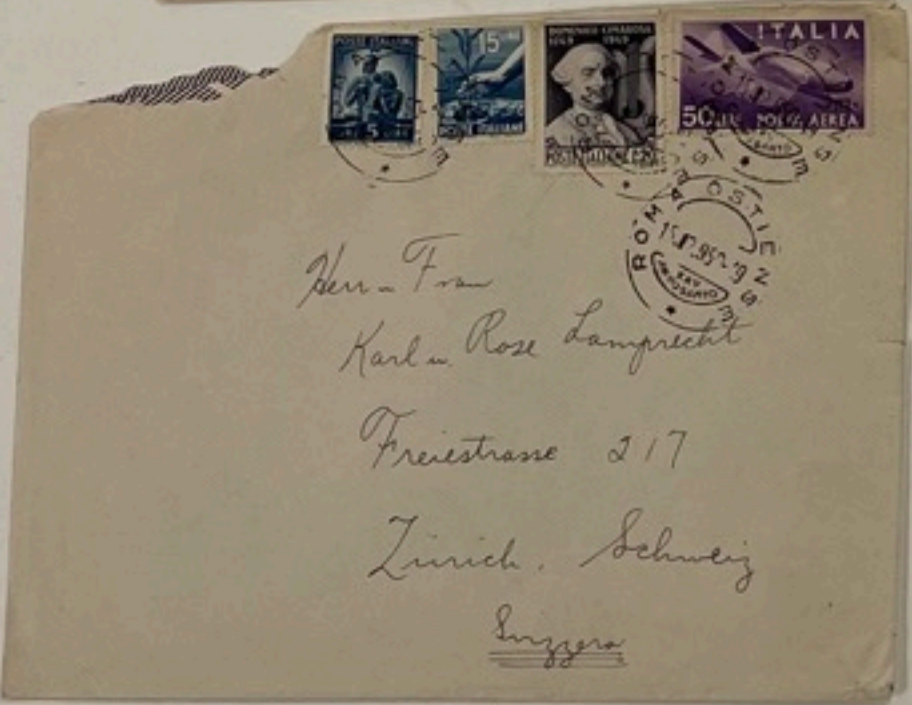 POSTE ITALIANE
15 LIRE
POSTE ITALIANE
DOMENICO CIMAROSA
1749 1949
POSTE ITALIANE L. 20
ITALIA
50 LIRE POSTA AEREA
ROMA OSTIENSE
Herr u Frau
Karl u. Rose Lamprecht
Freiestrasse 217
Zürich. Schweiz
Svizzera